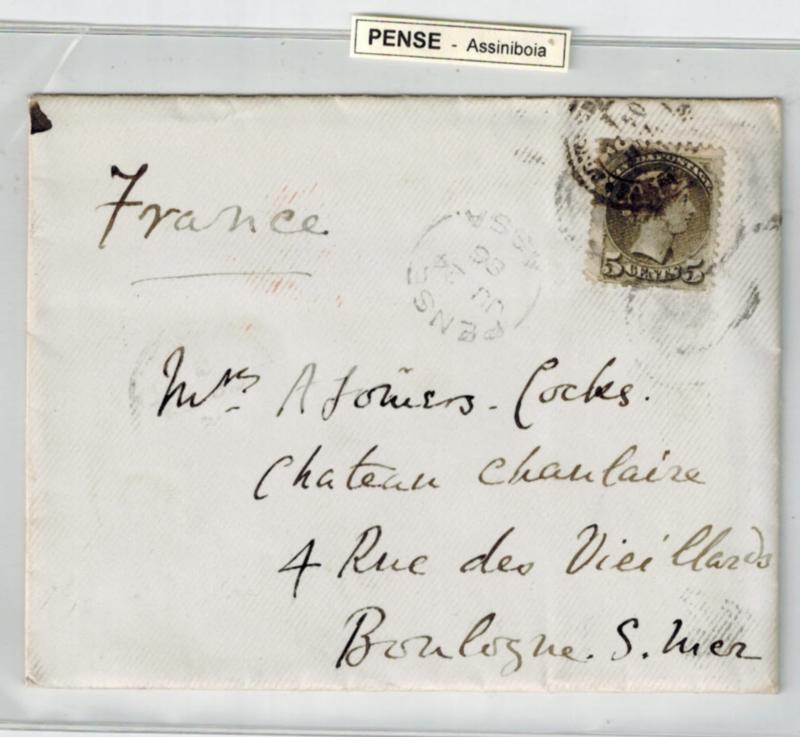 PENSE - Assiniboia
France
5 CENTS 5
PENSE
JU 24
86
ASSA
Mrs A Somers-Cocks.
Chateau Chanlaire
4 Rue des Vieillards
Boulogne. S. Mer